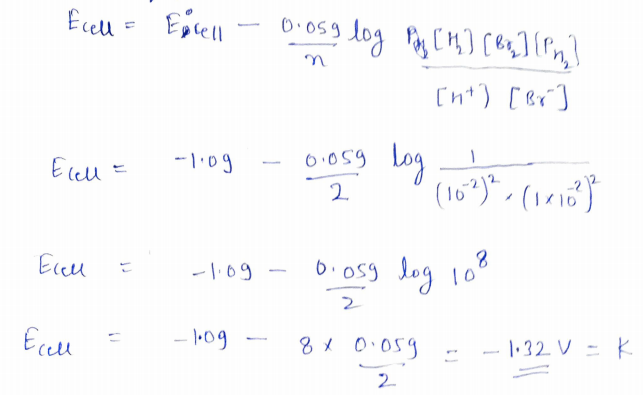 Ecell = E°cell − 0.059/n log [H₂] [Br₂] (P_H₂) / [H⁺) [Br⁻]
Ecell = −1.09 − 0.059/2 log 1 / (10⁻²)² × (1×10⁻²)²
Ecell = −1.09 − 0.059/2 log 10⁸
Ecell = −1.09 − 8 × 0.059/2 = −1.32 V = K